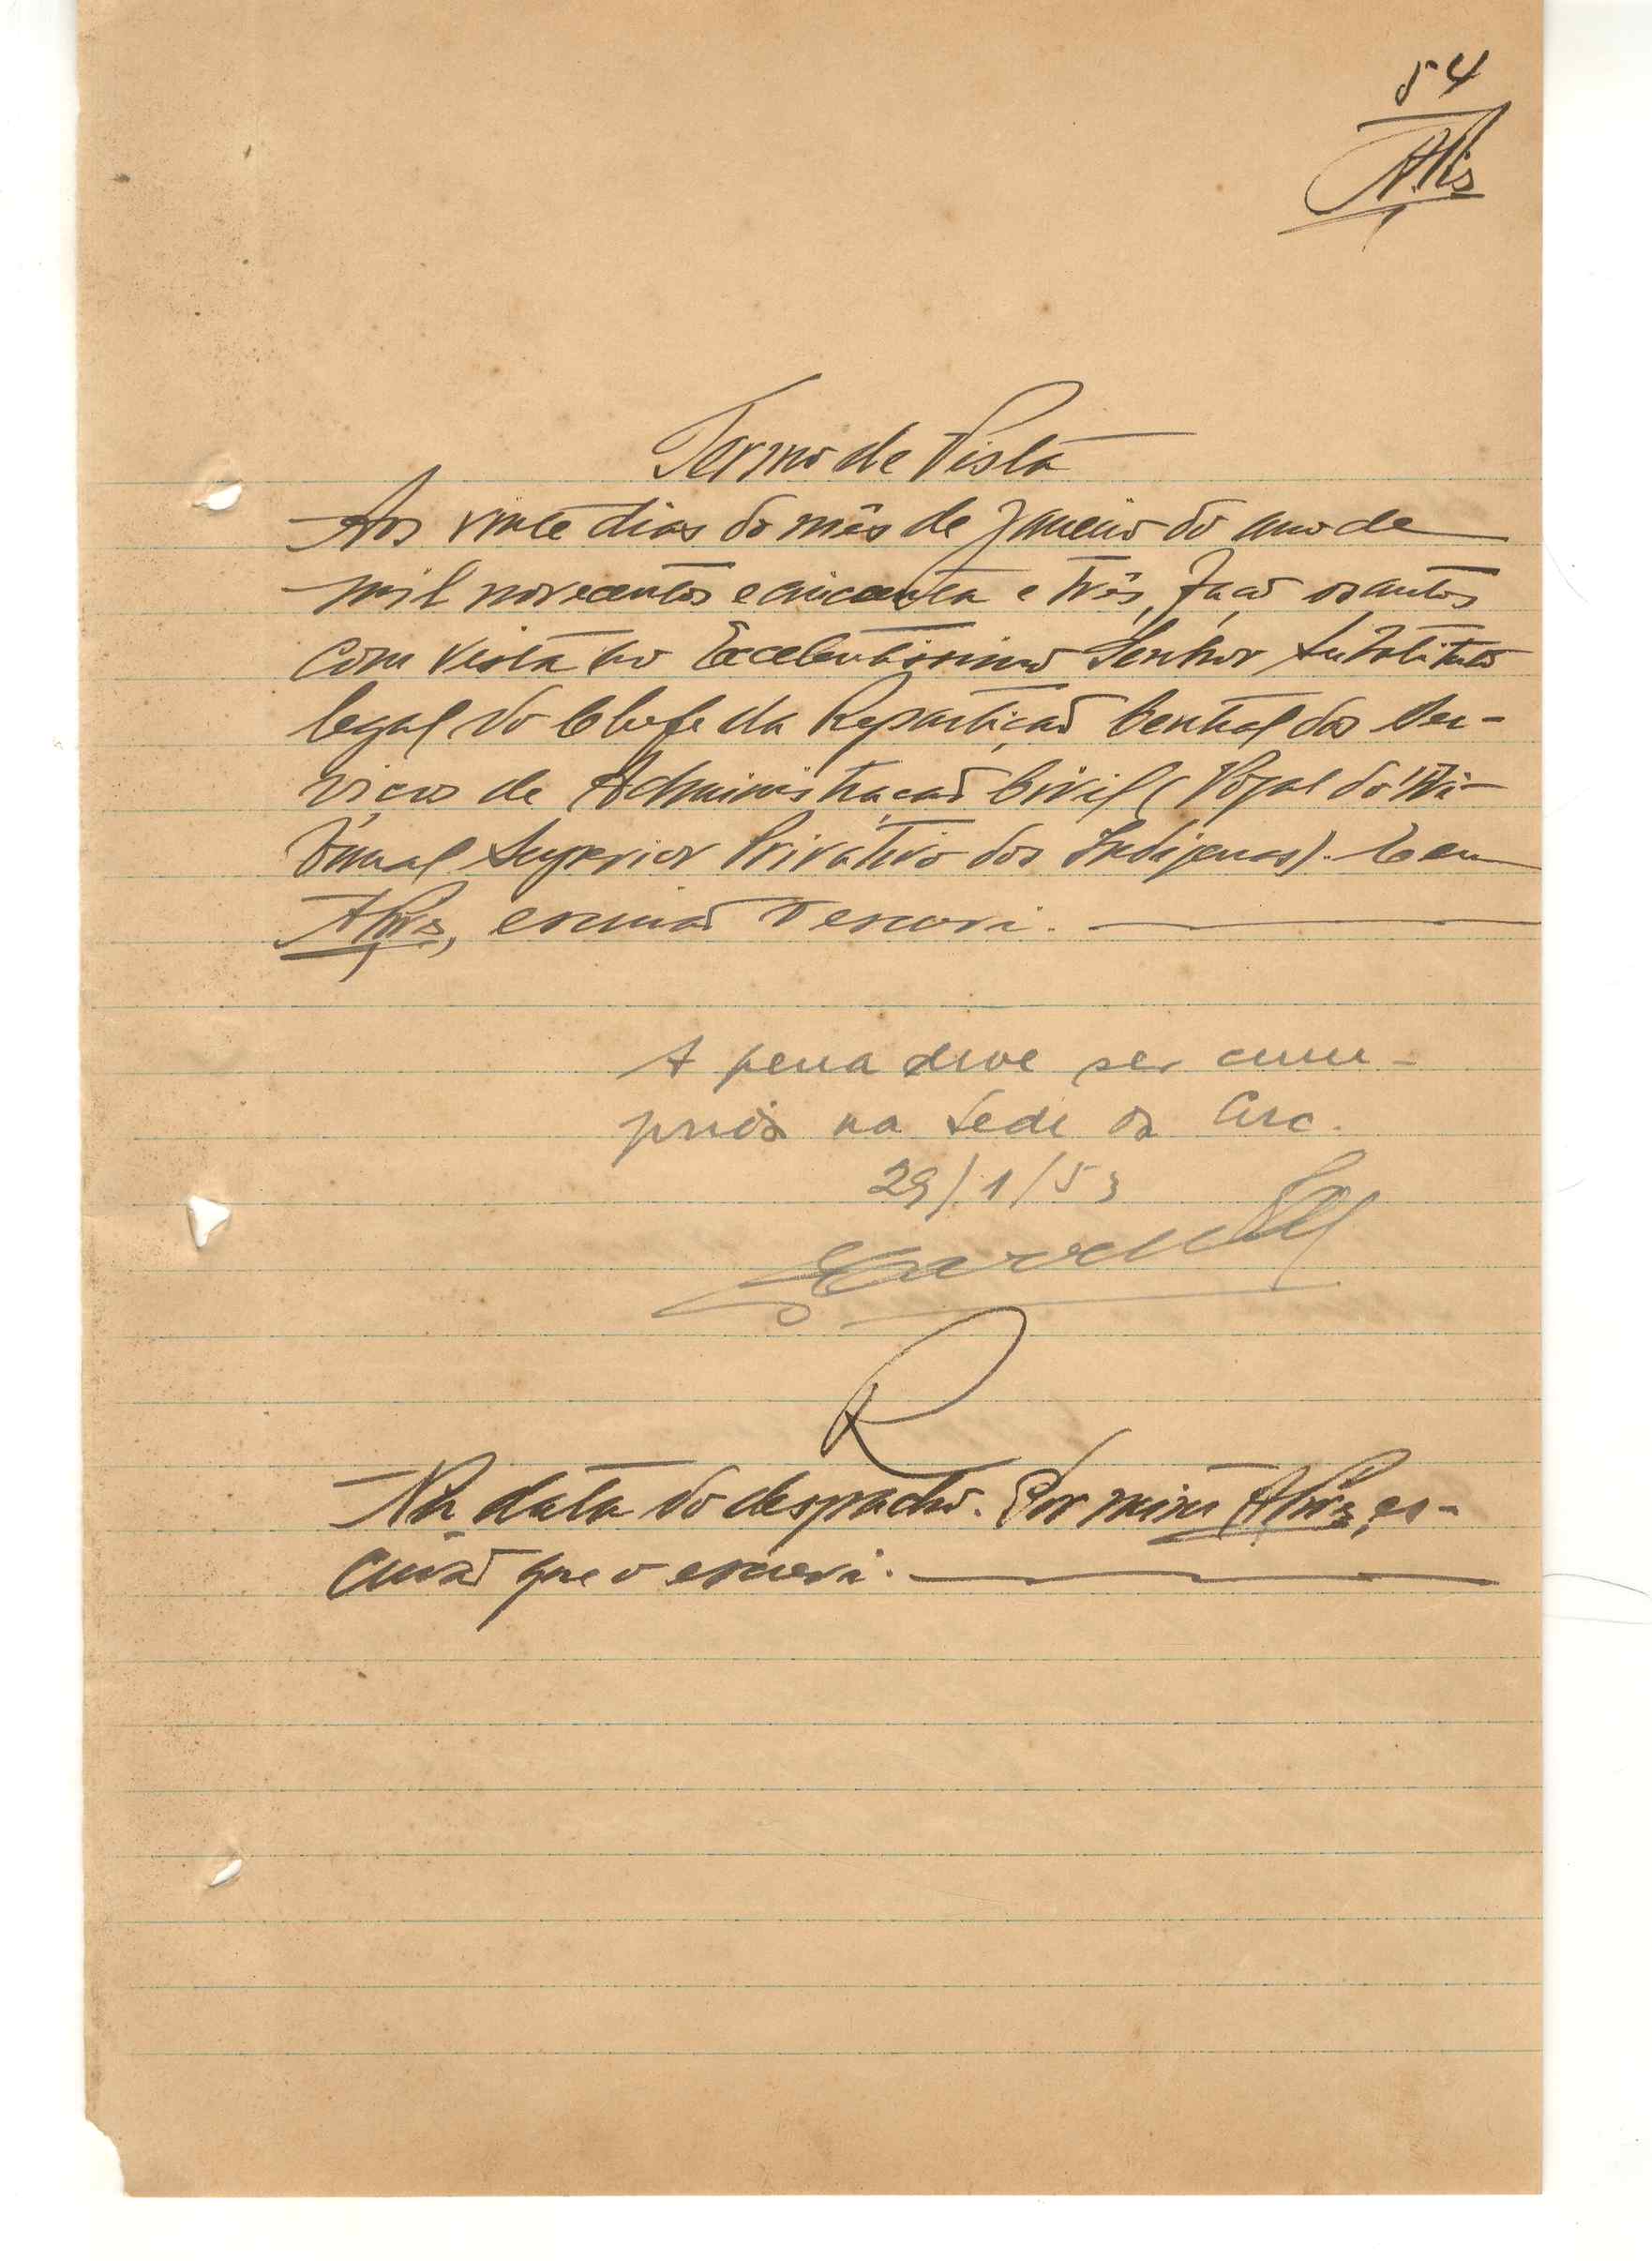 54
Termo de Vista
Aos vinte dias do mês de Janeiro do ano de
mil novecentos e cincoenta e três, faço os autos
com vista ao Excelentissimo Senhor Substituto
legal do Chefe da Repartição Central dos Ser-
viços de Administração Civil (Vogal do Tri-
bunal Superior Privativo dos Indigenas). E eu
escrivão o escrevi.
A pena deve ser cum-
prida na Sede da Circ.
29/1/53
R
Na data do despacho. Por mim es-
crivão que o escrevi.